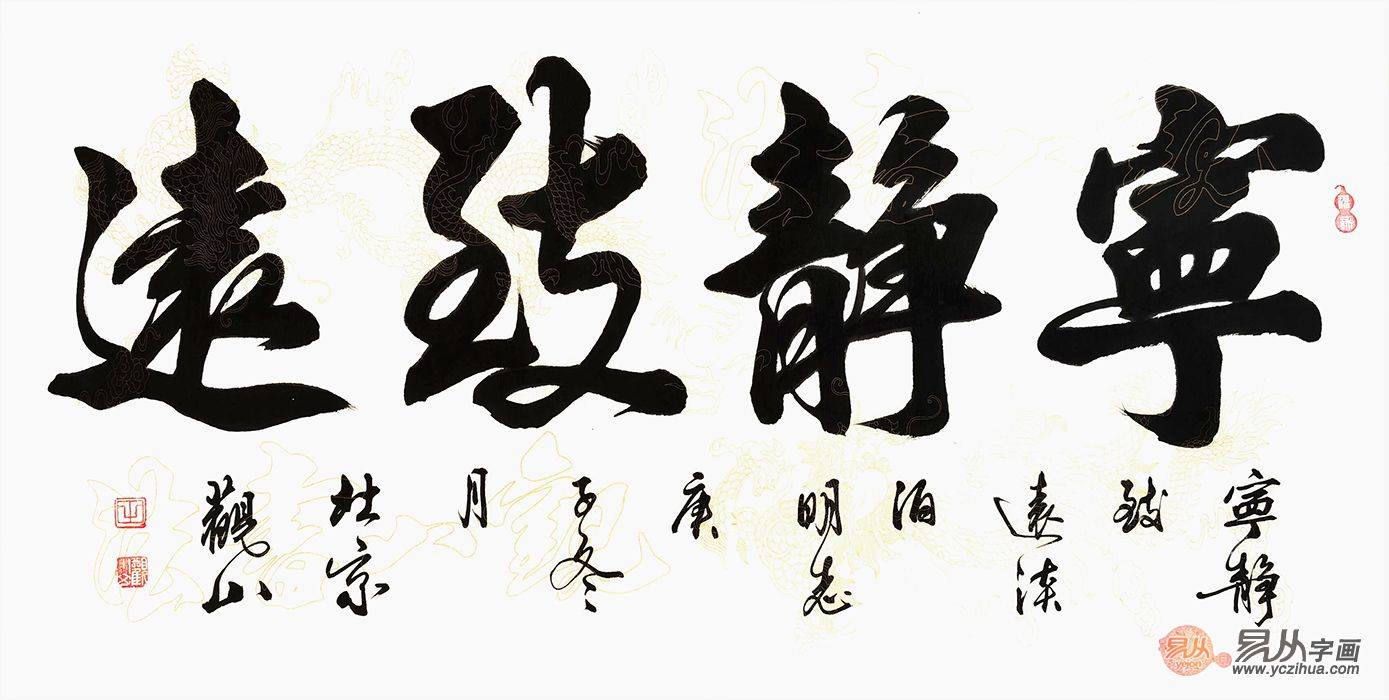 寧靜致遠
寧靜
致
遠淡
泊
明志
庚
子冬
月
於京
觀山
易从
易从字画
www.yczihua.com